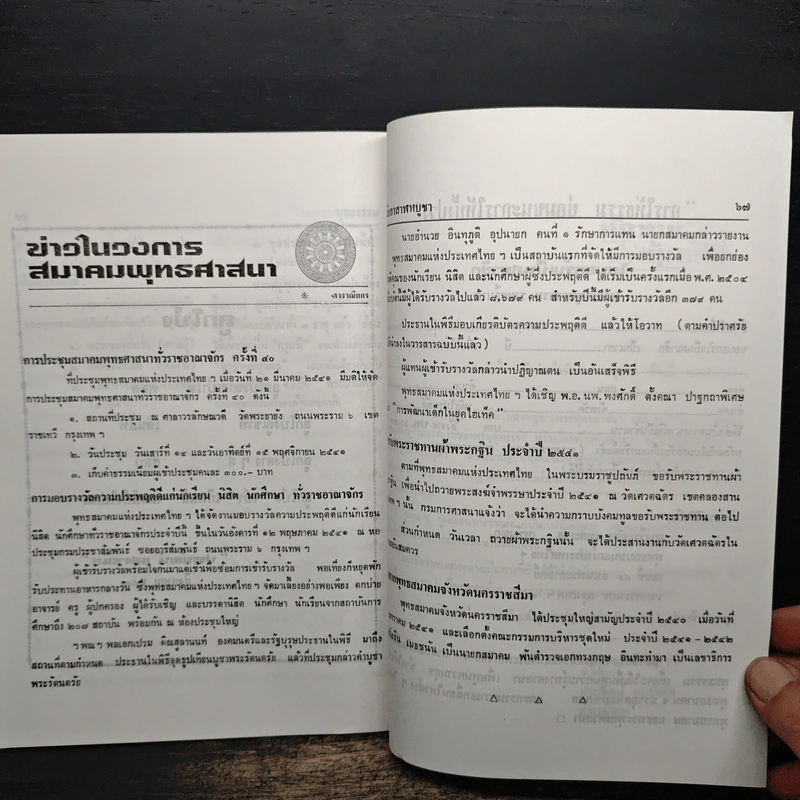 ข่าวในวงการ
สมาคมพุทธศาสนา
สาราณียกร
การประชุมสมาคมพุทธศาสนาทั่วราชอาณาจักร ครั้งที่ ๔๐
ที่ประชุมพุทธสมาคมแห่งประเทศไทย ฯ เมื่อวันที่ ๒๑ มีนาคม ๒๕๔๑ มีมติให้จัด
การประชุมสมาคมพุทธศาสนาทั่วราชอาณาจักร ครั้งที่ ๔๐ ดังนี้
๑. สถานที่ประชุม ณ ศาลาวรลักษณวดี วัดพระยายัง ถนนพระราม ๖ เขต
ราชเทวี กรุงเทพ ฯ
๒. วันประชุม วันเสาร์ที่ ๑๔ และวันอาทิตย์ที่ ๑๕ พฤศจิกายน ๒๕๔๑
๓. เก็บค่าธรรมเนียมผู้เข้าประชุมคนละ ๓๐๐.- บาท
การมอบรางวัลความประพฤติดีแก่นักเรียน นิสิต นักศึกษา ทั่วราชอาณาจักร
พุทธสมาคมแห่งประเทศไทย ฯ ได้จัดงานมอบรางวัลความประพฤติดีแก่นักเรียน
นิสิต นักศึกษาทั่วราชอาณาจักรประจำปีนี้ ขึ้นในวันอังคารที่ ๑๒ พฤษภาคม ๒๕๔๑ ณ หอ
ประชุมกรมประชาสัมพันธ์ ซอยอารีสัมพันธ์ ถนนพระราม ๖ กรุงเทพ ฯ
ผู้เข้ารับรางวัลพร้อมใจกันมาแต่เช้าเพื่อซ้อมการเข้ารับรางวัล พอเที่ยงก็หยุดพัก
รับประทานอาหารกลางวัน ซึ่งพุทธสมาคมแห่งประเทศไทย ฯ จัดมาเลี้ยงอย่างพอเพียง ตกบ่าย
อาจารย์ ครู ผู้ปกครอง ผู้ได้รับเชิญ และบรรดานิสิต นักศึกษา นักเรียนจากสถาบันการ
ศึกษาถึง ๒๐๗ สถาบัน พร้อมกัน ณ ห้องประชุมใหญ่
ฯ พณ ฯ พลเอกเปรม ติณสูลานนท์ องคมนตรีและรัฐบุรุษประธานในพิธี มาถึง
สถานที่ตามกำหนด ประธานในพิธีจุดธูปเทียนบูชาพระรัตนตรัย แล้วที่ประชุมกล่าวคำบูชา
พระรัตนตรัย
อาสาฬหบูชา ๖๗
นายอำนวย อินทุภูติ อุปนายก คนที่ ๑ รักษาการแทน นายกสมาคมกล่าวรายงาน
พุทธสมาคมแห่งประเทศไทย ฯ เป็นสถาบันแรกที่จัดให้มีการมอบรางวัล เพื่อยกย่อง
คุณของนักเรียน นิสิต และนักศึกษาผู้ซึ่งประพฤติดี ได้เริ่มเป็นครั้งแรกเมื่อ พ.ศ. ๒๕๐๔
มีผู้ได้รับรางวัลไปแล้ว ๘,๖๗๙ คน สำหรับปีนี้มีผู้เข้ารับรางวัลอีก ๓๗๙ คน
ประธานในพิธีมอบเกียรติบัตรความประพฤติดี แล้วให้โอวาท (ตามคำปราศรัย
ในวารสารฉบับนี้แล้ว)
ผู้แทนผู้เข้ารับรางวัลกล่าวนำปฏิญาณตน เป็นอันเสร็จพิธี
พุทธสมาคมแห่งประเทศไทย ฯ ได้เชิญ พ.อ. นพ. พงศ์ศักดิ์ ตั้งคณา ปาฐกถาพิเศษ
"การพัฒนาเด็กในยุคไฮเท็ค"
พระราชทานผ้าพระกฐิน ประจำปี ๒๕๔๑
ตามที่พุทธสมาคมแห่งประเทศไทย ในพระบรมราชูปถัมภ์ ขอรับพระราชทานผ้า
เพื่อนำไปถวายพระสงฆ์จำพรรษาประจำปี ๒๕๔๑ ณ วัดเศวตฉัตร เขตคลองสาน
ฯ นั้น กรมการศาสนาแจ้งว่า จะได้นำความกราบบังคมทูลขอรับพระราชทาน ต่อไป
ส่วนกำหนด วันเวลา ถวายผ้าพระกฐินนั้น จะได้ประสานงานกับวัดเศวตฉัตรใน
สมควร
พุทธสมาคมจังหวัดนครราชสีมา
พุทธสมาคมจังหวัดนครราชสีมา ได้ประชุมใหญ่สามัญประจำปี ๒๕๔๐ เมื่อวันที่
๒๕๔๑ และเลือกตั้งคณะกรรมการบริหารชุดใหม่ ประจำปี ๒๕๔๑ - ๒๕๔๒
เมธชนัน เป็นนายกสมาคม พันตำรวจเอกทรงกฤษ อินทะทำมา เป็นเลขาธิการ